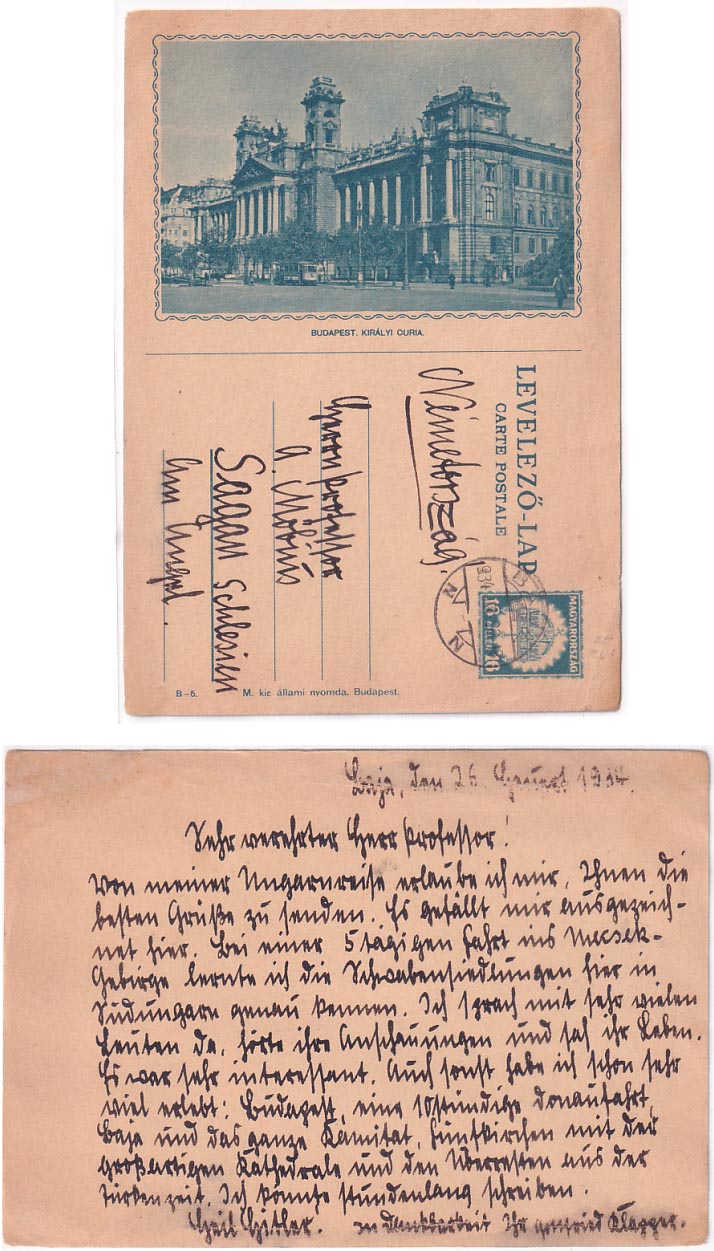 BUDAPEST. KIRÁLYI CURIA.
LEVELEZŐ-LAP
CARTE POSTALE
Németország.
Herrn Professor
A. Möbius
Sagan Schlesien
Am Engel.
MAGYARORSZÁG
10 10
934
B–5. M. kir. állami nyomda, Budapest.
Baja, den 26. August 1934.
Sehr verehrter Herr Professor!
Von meiner Ungarnreise erlaube ich mir, Ihnen die
besten Grüße zu senden. Es gefällt mir ausgezeich-
net hier. Bei einer 5 tägigen Fahrt ins Mecsek-
Gebirge lernte ich die Schwabensiedlungen hier in
Südungarn genau kennen. Ich sprach mit sehr vielen
Leuten da, hörte ihre Anschauungen und sah ihr Leben.
Es war sehr interessant. Auch sonst habe ich schon sehr
viel erlebt: Budapest, eine 10stündige Donaufahrt,
Baja und das ganze Komitat, Fünfkirchen mit der
großartigen Kathedrale und den Überresten aus der
Türkenzeit. Ich könnte stundenlang schreiben.
Heil Hitler. In Dankbarkeit Ihr Gottfried Klapper.